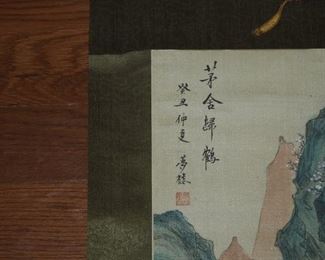 茅舍歸鶴
癸丑仲夏 夢